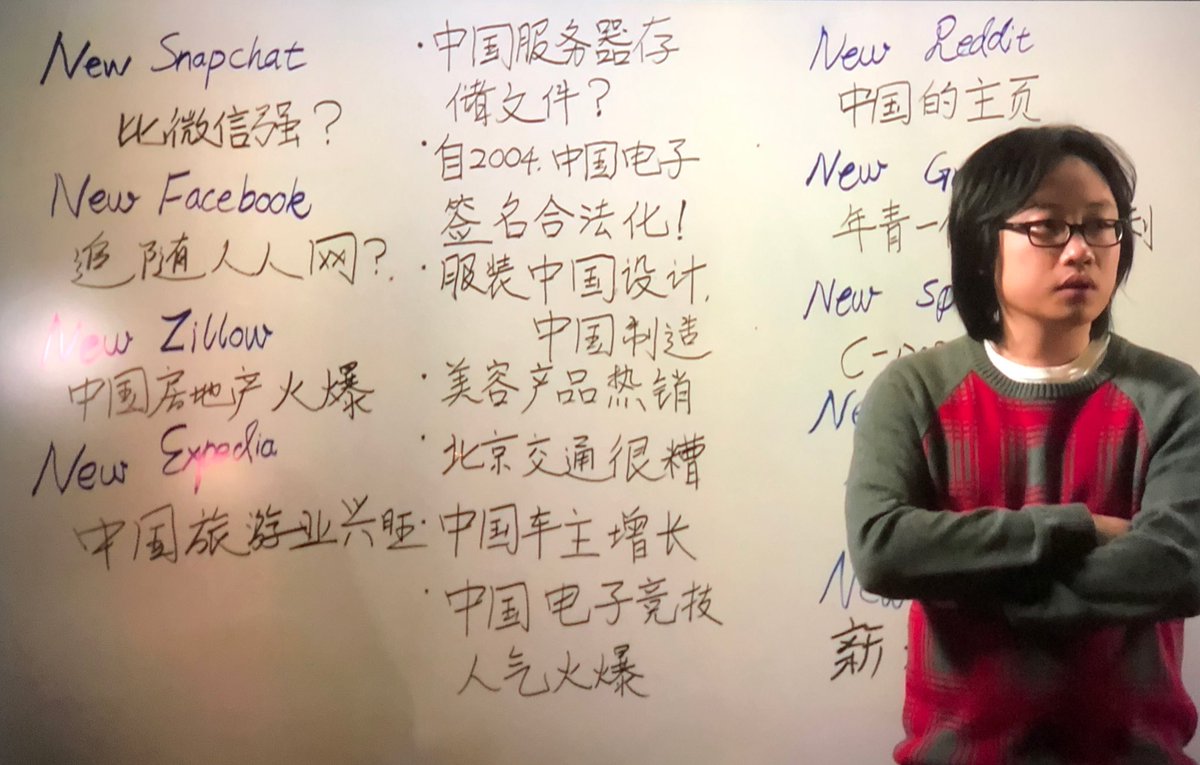 New Snapchat
比微信强？
New Facebook
追随人人网？
New Zillow
中国房地产火爆
New Expedia
中国旅游业兴旺
·中国服务器存
储文件？
·自2004.中国电子
签名合法化！
·服装中国设计,
中国制造
·美容产品热销
·北京交通很糟
·中国车主增长
·中国电子竞技
人气火爆
New Reddit
中国的主页
New
年青一
New
New
新